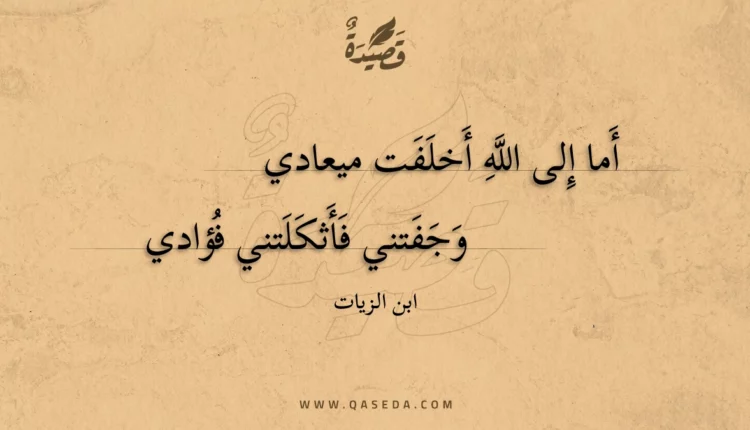 قَصِيدَةٌ
أَما إِلى اللَّهِ أَخلَفَت ميعادي
وَجَفَتني فَأَثكَلَتني فُؤادي
ابن الزيات
WWW.QASEDA.COM